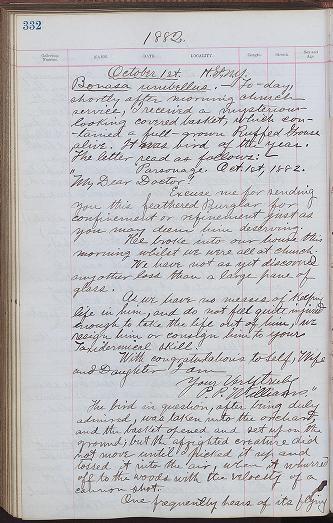 332
1882.
Collector's Number. NAME. DATE. LOCALITY. Length. Stretch. Sex and Age.
October 1st. H.F., N.Y.
Bonasa umbellus. To-day,
shortly after morning church
service, I received a mysterious-
looking covered basket, which con-
tained a full-grown Ruffed Grouse
alive. It was bird of the year.
The letter read as follows:-
"Parsonage. Oct. 1st, 1882.
My Dear Doctor:
Excuse me for sending
you this feathered Burglar for
confinement or refinement just as
you may deem him deserving.
He broke into our house this
morning whilst we were all at church.
We have not as yet discovered
any other loss than a large pane of
glass.
As we have no means of keeping
life in him, and do not feel quite injured
enough to take the life out of him, we
resign him or consign him to your
Taxidermical skill.
With congratulations to Self, Wife
and Daughter I am
Yours very truly
P. P. Williams."
The bird in question, after being duly
admired, was taken into the orchard
and the basket opened and set upon the
ground, but the affrighted creature did
not move until I picked it up and
tossed it into the air, when it whirred
off to the woods with the velocity of a
cannon shot.
One frequently hears of its flying